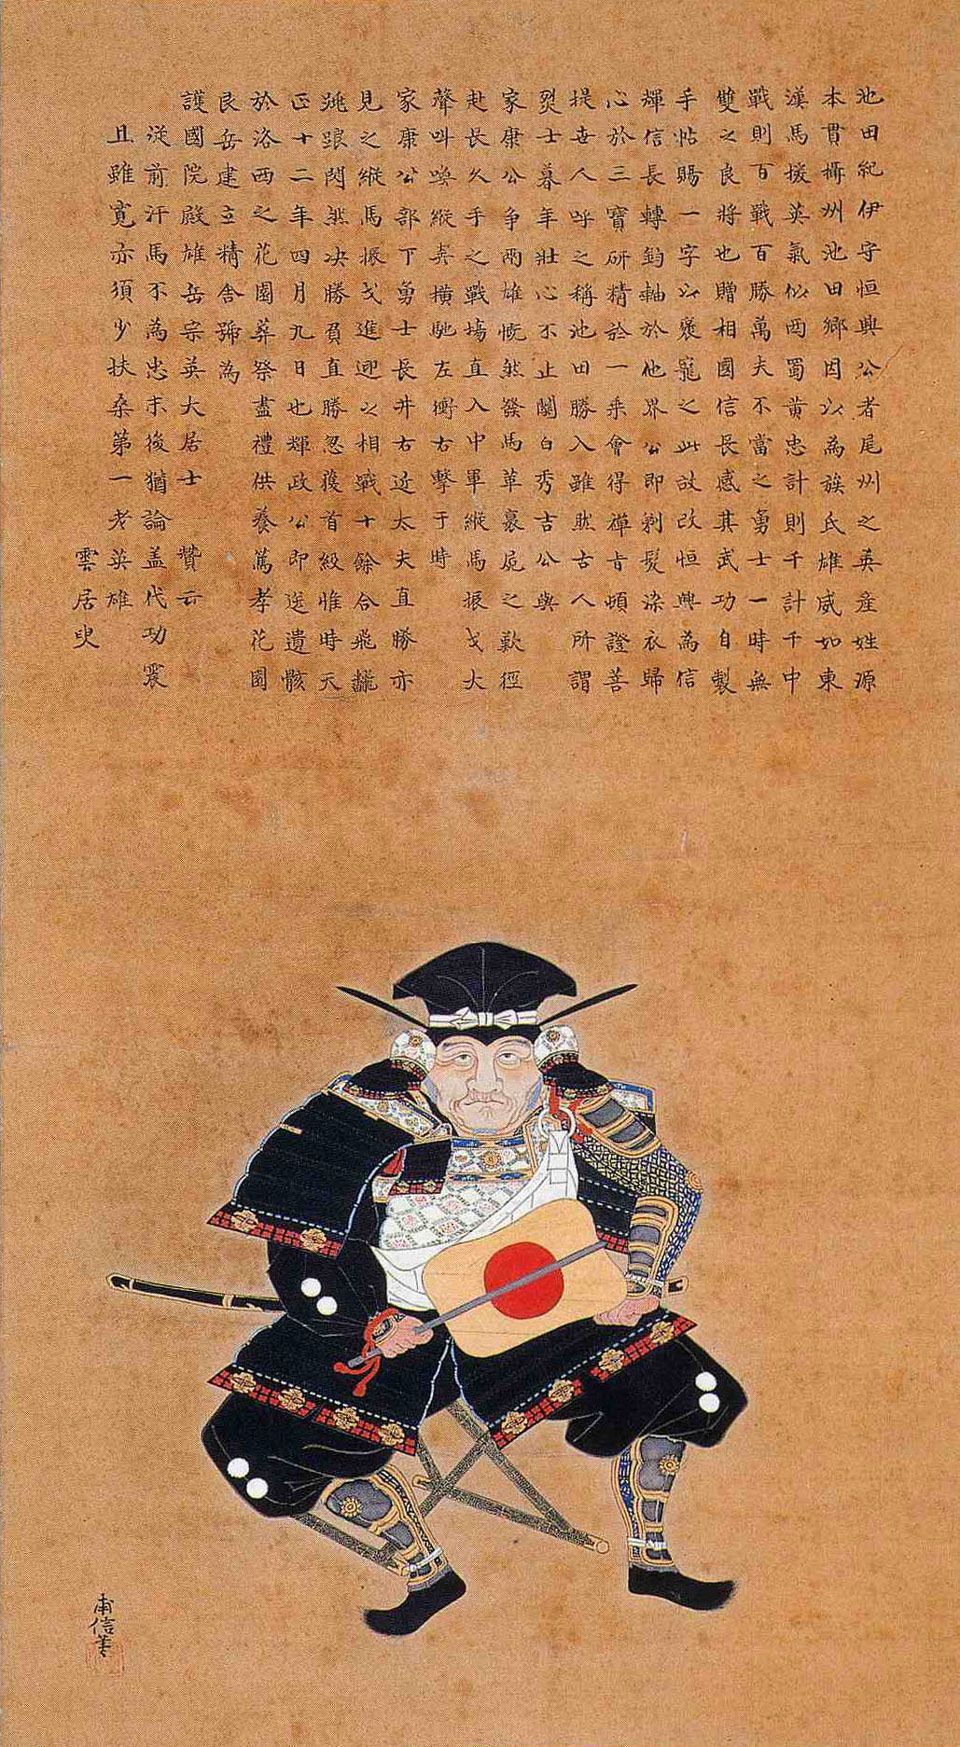 池田紀伊守恒興公者尾州之英産姓源
本貫攝州池田郷因以為族氏雄威如東
漢馬援英氣似西蜀黄忠計則千計千中
戰則百戰百勝萬夫不當之勇士一時無
雙之良將也贈相國信長感其武功自製
手帖賜一字以褒寵之此故改恒興為信
輝信長轉鈞軸於他界公即剃髮染衣歸
心於三寶研精於一乘會得禪旨頓證菩
提世人呼之稱池田勝入雖然古人所謂
烈士暮年壯心不止關白秀吉公與
家康公爭兩雄慨然發馬革裹屍之歎徑
赴長久手之戰場直入中軍縱馬振戈大
聲叫喚縱奔横馳左衝右擊于時
家康公部下勇士長井右近太夫直勝亦
見之縱馬振戈進迎之相戰十餘合飛
跳踉閃然决勝負直勝忽獲首級惟時天
正十二年四月九日也輝政公即送遺骸
於洛西之花園葬祭盡禮供養篤孝花園
艮岳建立精舎號為
護國院殿雄岳宗英大居士 贊云
從前汗馬不為忠末後猶論盖代功震
且雖寛亦須少扶桑第一老英雄
雲居叟
甫信筆